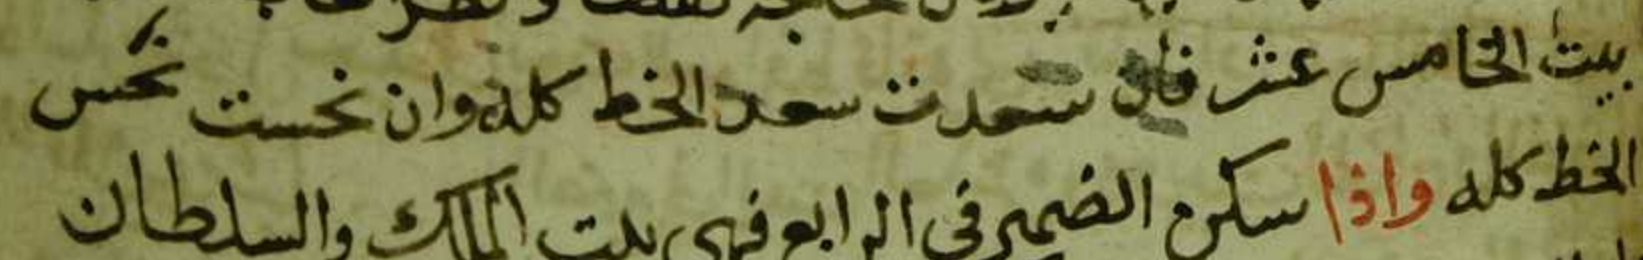 بيت الخامس عشر فان سعدت سعد الخط كله وان نحست نحس
الخط كله واذا سكن الضمير في الرابع فهي بيت الملك والسلطان